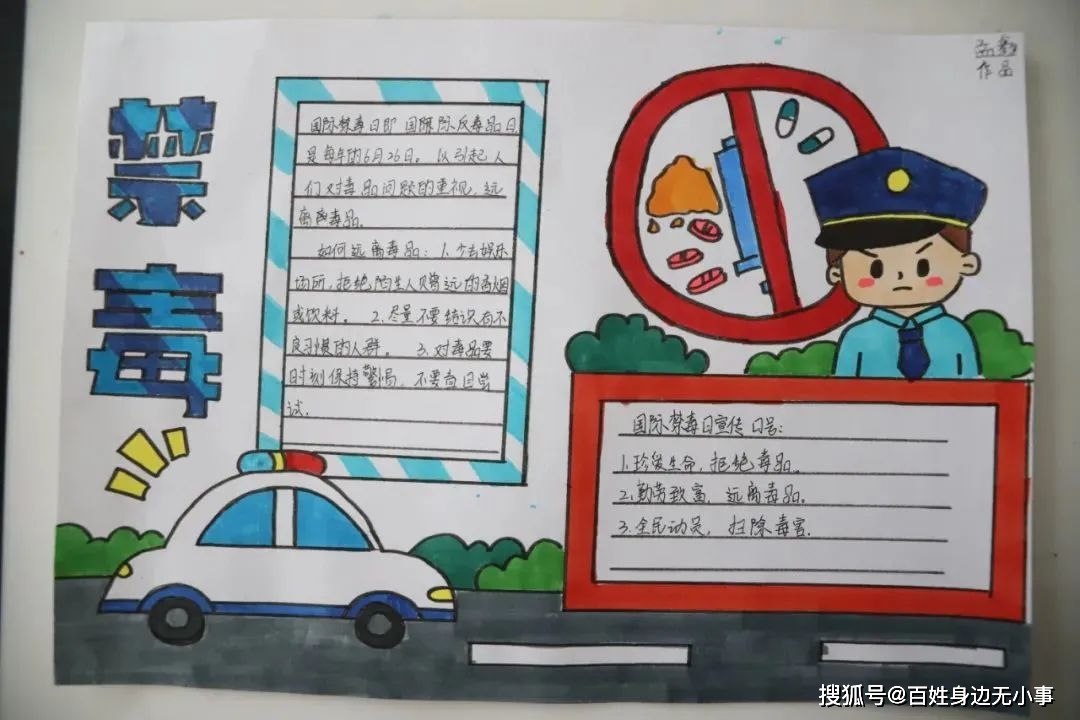 禁
毒
国际禁毒日即国际反毒品日
是每年的6月26日。以引起人
们对毒品问题的重视，远
离毒品。
如何远离毒品：1.少去娱乐
场所，拒绝陌生人赠送的香烟
或饮料。 2.尽量不要结识有不
良习惯的人群。 3.对毒品要
时刻保持警惕，不要盲目尝
试.
作品
国际禁毒日宣传口号：
1.珍爱生命，拒绝毒品。
2.勤劳致富，远离毒品。
3.全民动员，扫除毒害.
搜狐号@百姓身边无小事